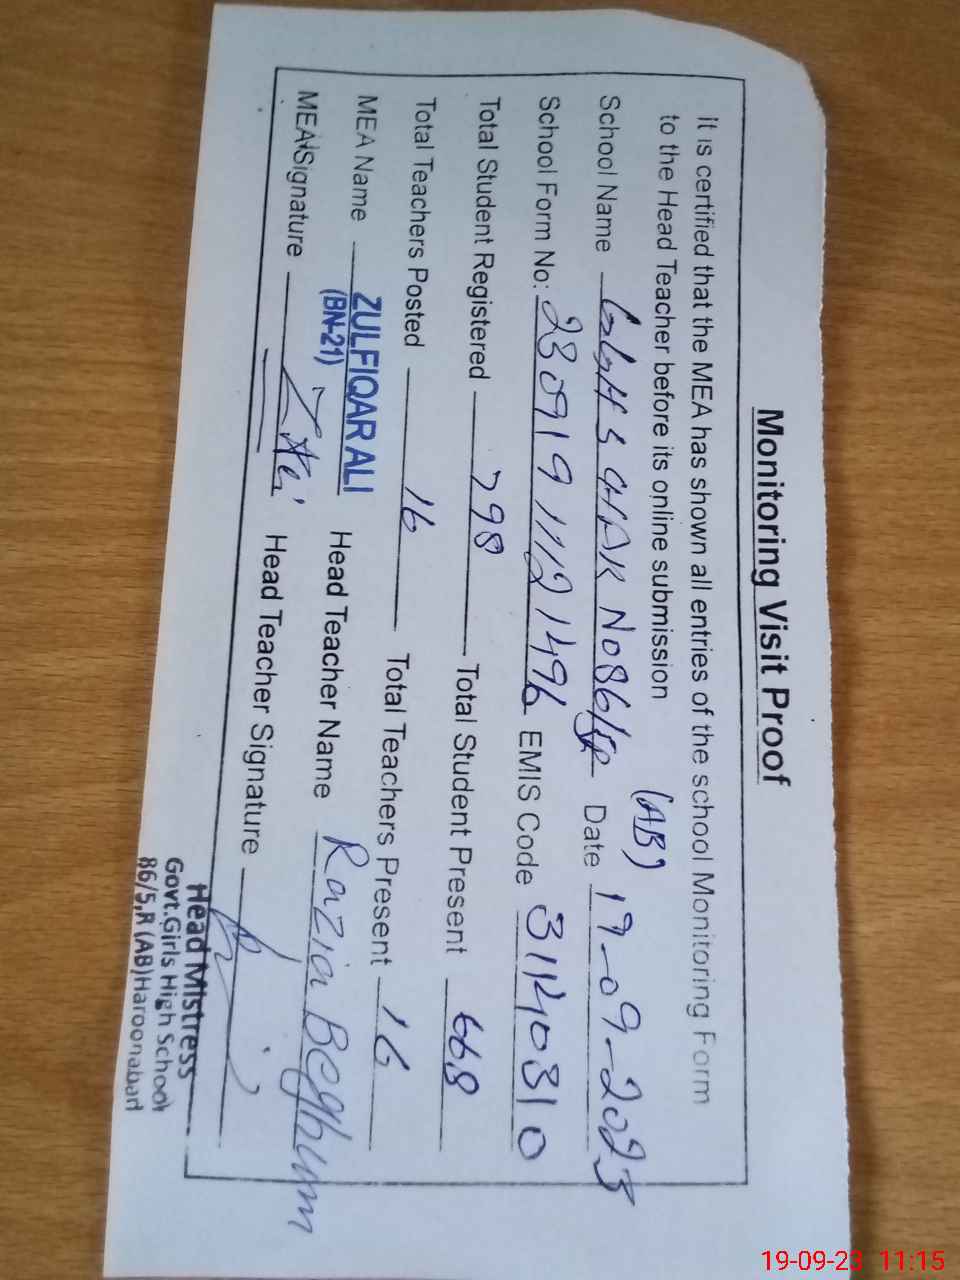 Monitoring Visit Proof
it is certified that the MEA has shown all entries of the school Monitoring Form
to the Head Teacher before its online submission
(AB)
School Name GGHS CHAK No 86/5R Date 19-09-2023
School Form No: 23091911121496 EMIS Code 31140310
Total Student Registered 798 Total Student Present 668
Total Teachers Posted 16 Total Teachers Present 16
MEA Name ZULFIQAR ALI Head Teacher Name Razia Beghum
(BN-21)
MEA Signature Head Teacher Signature
Head Mistress
Govt.Girls High School
86/5,R (AB)Haroonabad
19-09-23 11:15